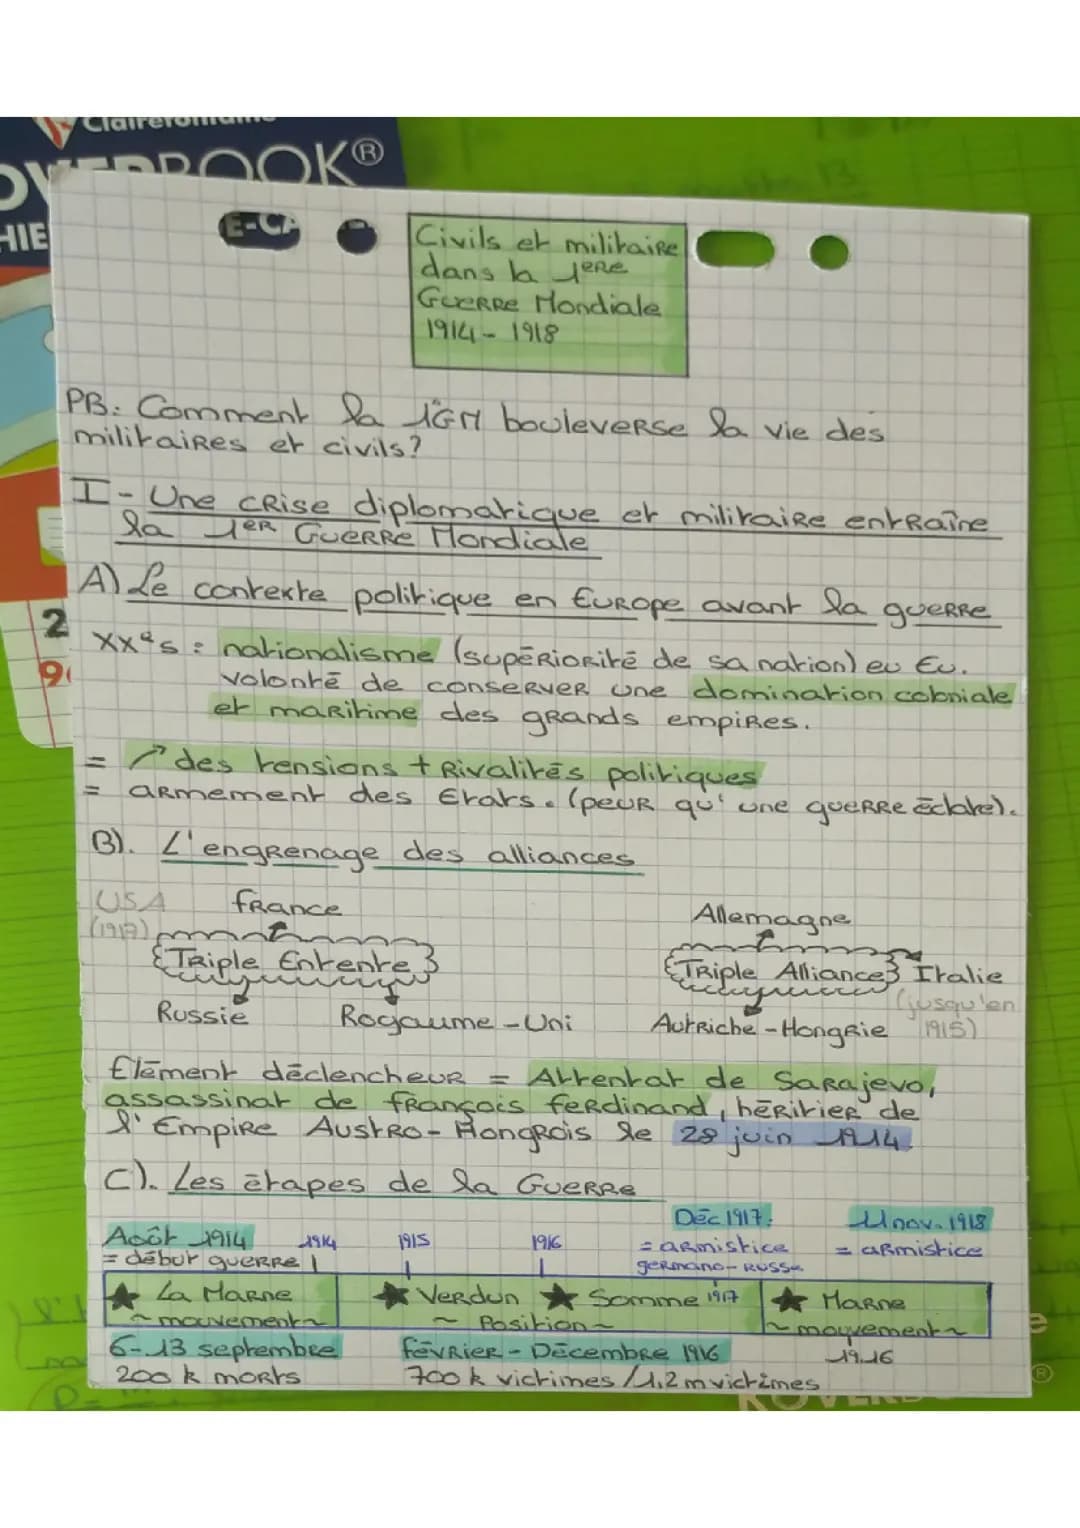 Clairefontaine
OVERBOOK®
HIE
E-CA
Civils et militaire
dans la 1ERE
Guerre Mondiale
1914 - 1918
PB: Comment la 1GM bouleverse la vie des
militaires et civils?
I - Une crise diplomatique et militaire entraîne
la 1ER Guerre Mondiale
A) Le contexte politique en Europe avant la guerre
2
90
XXes : nationalisme (supériorité de sa nation) eu Eu.
volonté de conserver une domination coloniale
et maritime des grands empires.
= ↗ des tensions + rivalités politiques
= armement des Etats. (peur qu'une guerre éclate).
B). L'engrenage des alliances
USA
(1917)
France
Triple Entente
Russie
Royaume - Uni
Allemagne
Triple Alliance
Italie
(jusqu'en
1915)
Autriche - Hongrie
Elément déclencheur = Attentat de Sarajevo,
assassinat de françois ferdinand, héritier de
l'Empire Austro - Hongrois le 28 juin 1914.
C). Les étapes de la Guerre
Août 1914
= début guerre
1914
1915
1916
Déc 1917:
= armistice
germano - russe
11 nov. 1918
= armistice
★ La Marne
~ mouvement ~
★ Verdun ★ Somme 1917
~ Position ~
★ Marne
~ mouvement ~
6 - 13 septembre
200 k morts
février - Décembre 1916
700 k victimes / 1,2 m victimes
1916